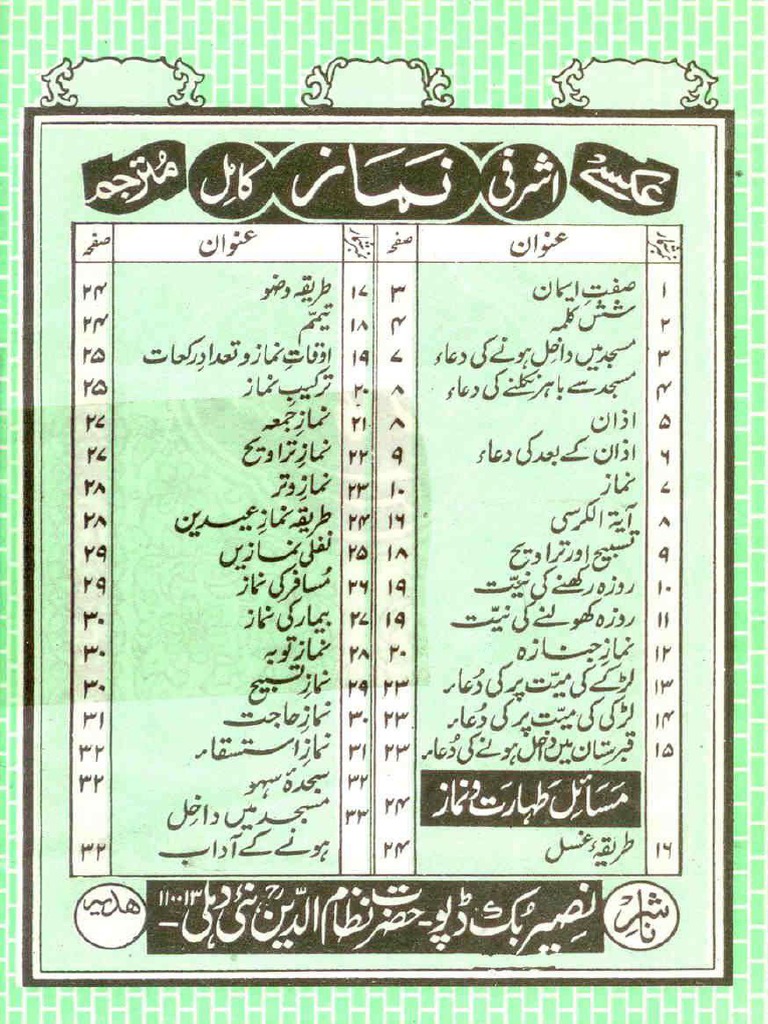 عکسی اشرفی نماز کامل مترجم
نمبر شمار عنوان صفحہ
۱ صفتِ ایمان ۳
۲ شش کلمہ ۴
۳ مسجد میں داخل ہونے کی دعاء ۷
۴ مسجد سے باہر نکلنے کی دعاء ۸
۵ اذان ۸
۶ اذان کے بعد کی دعاء ۹
۷ نماز ۱۰
۸ آیۃ الکرسی ۱۶
۹ تسبیح اور تراویح ۱۸
۱۰ روزہ رکھنے کی نیّت ۱۹
۱۱ روزہ کھولنے کی نیّت ۱۹
۱۲ نمازِ جنازہ ۲۰
۱۳ لڑکے کی میّت پر کی دُعاء ۲۳
۱۴ لڑکی کی میّت پر کی دُعاء ۲۳
۱۵ قبرستان میں داخل ہونے کی دُعاء ۲۳
مَسَائلِ طہارت و نماز ۲۴
۱۶ طریقۂ غسل ۲۴
نمبر شمار عنوان صفحہ
۱۷ طریقہ وضو ۲۴
۱۸ تیمّم ۲۴
۱۹ اوقاتِ نماز و تعدادِ رکعات ۲۵
۲۰ ترکیبِ نماز ۲۵
۲۱ نمازِ جمعہ ۲۷
۲۲ نمازِ تراویح ۲۷
۲۳ نمازِ وتر ۲۸
۲۴ طریقہ نمازِ عیدین ۲۸
۲۵ نفلی نمازیں ۲۹
۲۶ مُسافر کی نماز ۲۹
۲۷ بیمار کی نماز ۳۰
۲۸ نمازِ توبہ ۳۰
۲۹ نمازِ تسبیح ۳۰
۳۰ نمازِ حاجت ۳۱
۳۱ نمازِ استسقاء ۳۲
۳۲ سجدۂ سہو ۳۲
۳۳ مسجد میں داخل
ہونے کے آداب ۳۲
ناشر نصیر بُک ڈپو۔ حضرت نظام الدّینؒ نئی دہلی ۱۱۰۰۱۳ ھدیہ